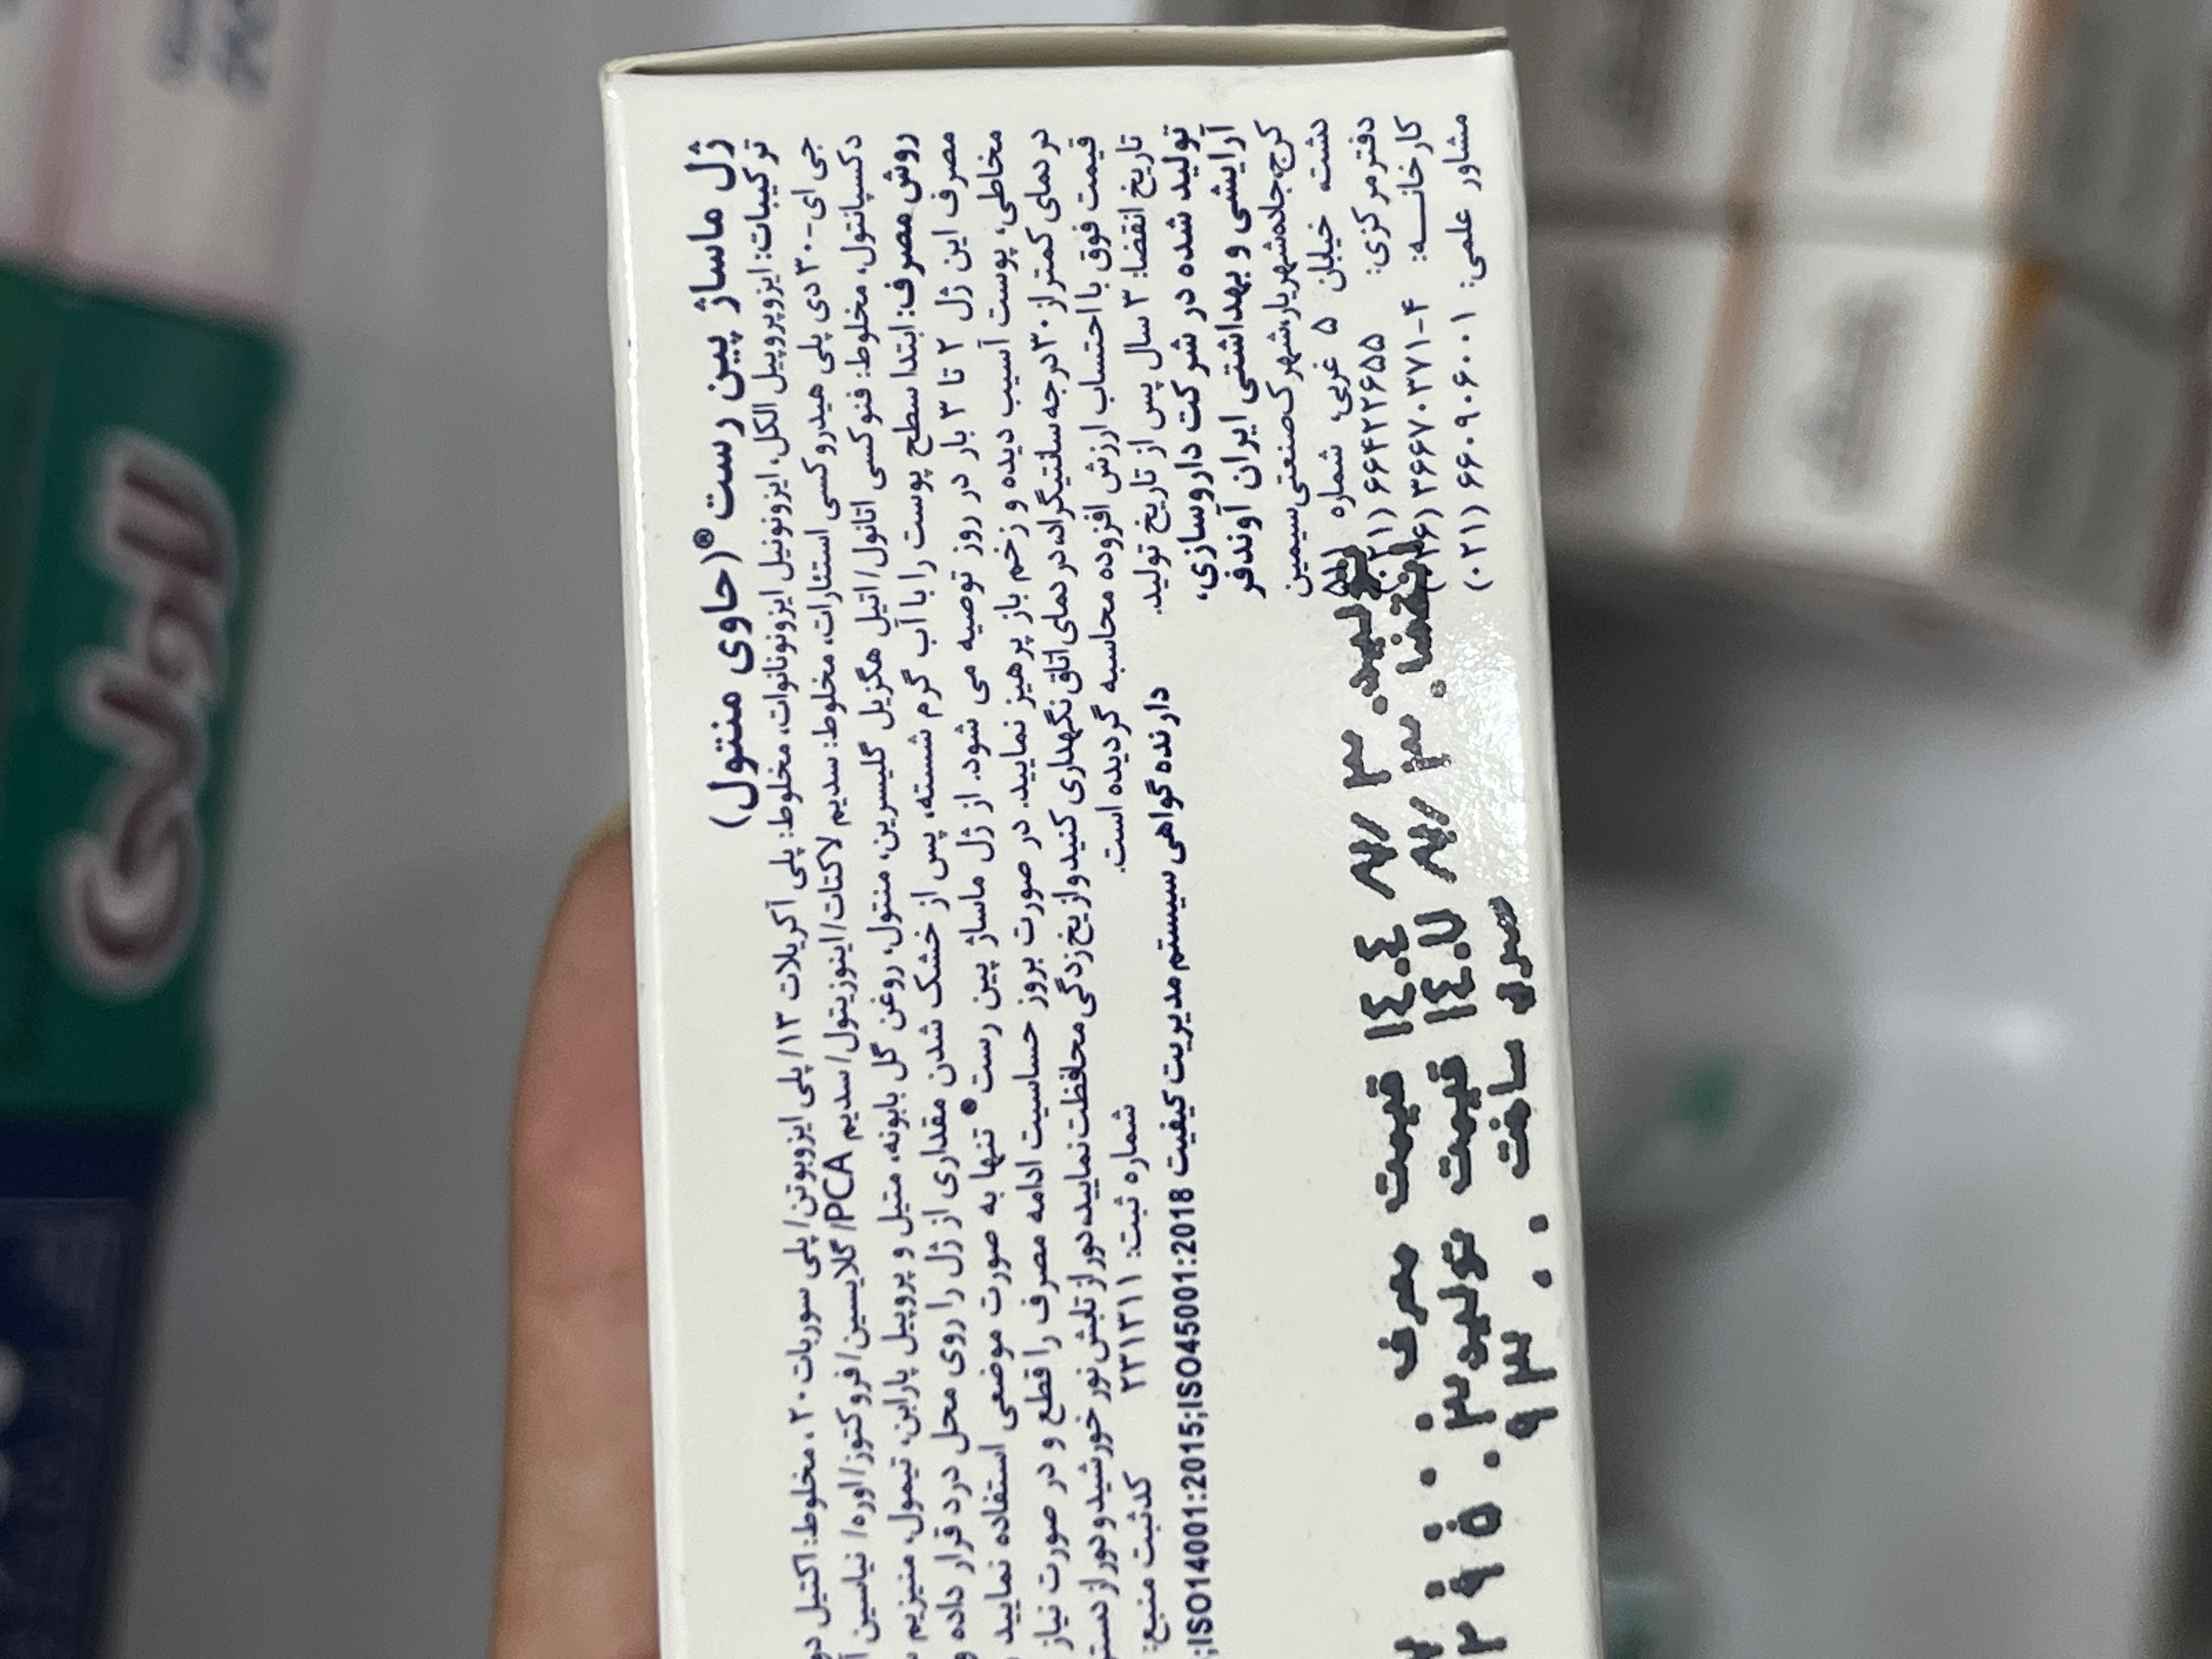 ژل ماساژ پین رست® (حاوی منتول)
ترکیبات: ایزوپروپیل الکل، ایزونونیل ایزونونانوات، مخلوط: پلی آکریلات ۱۳/ پلی ایزوبوتن/ پلی سوربات ۲۰، مخلوط: اکتیل
جی ای-۳۰ دی پلی هیدروکسی استئارات، مخلوط: سدیم لاکتات/ اینوزیتول/ سدیم PCA/ گلایسین/ فروکتوز/ اوره/ نیاسین
دکسپانتول، مخلوط: فنوکسی اتانول/ اتیل هگزیل گلیسرین، منتول، روغن گل بابونه، متیل و پروپیل پارابن، تیمول، منیزیم
روش مصرف: ابتدا سطح پوست را با آب گرم شسته، پس از خشک شدن مقداری از ژل را روی محل درد قرار داده و
مصرف این ژل ۲ تا ۳ بار در روز توصیه می شود. از ژل ماساژ پین رست® تنها به صورت موضعی استفاده نمایید
مخاطی، پوست آسیب دیده و زخم باز پرهیز نمایید. در صورت بروز حساسیت ادامه مصرف را قطع و در صورت نیاز
در دمای کمتر از ۳۰ درجه سانتیگراد، در دمای اتاق نگهداری کنید و از یخ زدگی محافظت نمایید، دور از تابش نور خورشید و دور از
قیمت فوق با احتساب ارزش افزوده محاسبه گردیده است.
شماره ثبت: ۲۳۱۳۱۱
کد ثبت منبع:
تاریخ انقضا: ۳ سال پس از تاریخ تولید.
دارنده گواهی سیستم مدیریت کیفیت ISO14001:2015;ISO45001:2018;
تولید شده در شرکت داروسازی،
آرایشی و بهداشتی ایران آوندفر
کرج، جاده شهریار، شهرک صنعتی سیمین
دشت، خیابان ۵ غربی، شماره
دفتر مرکزی: ۶۶۴۲۲۶۵۵
کارخانه: ۳۶۶۷۰۳۷۱-۴
مشاور علمی: ۶۶۰۹۰۶۰۰۱ (۰۲۱)
تولید. ۳
۱۴۰۴ قیمت مصرف
انقضا. ۳
۱۴۰۷ قیمت تولید
سری ساخت ۰۰۳۹